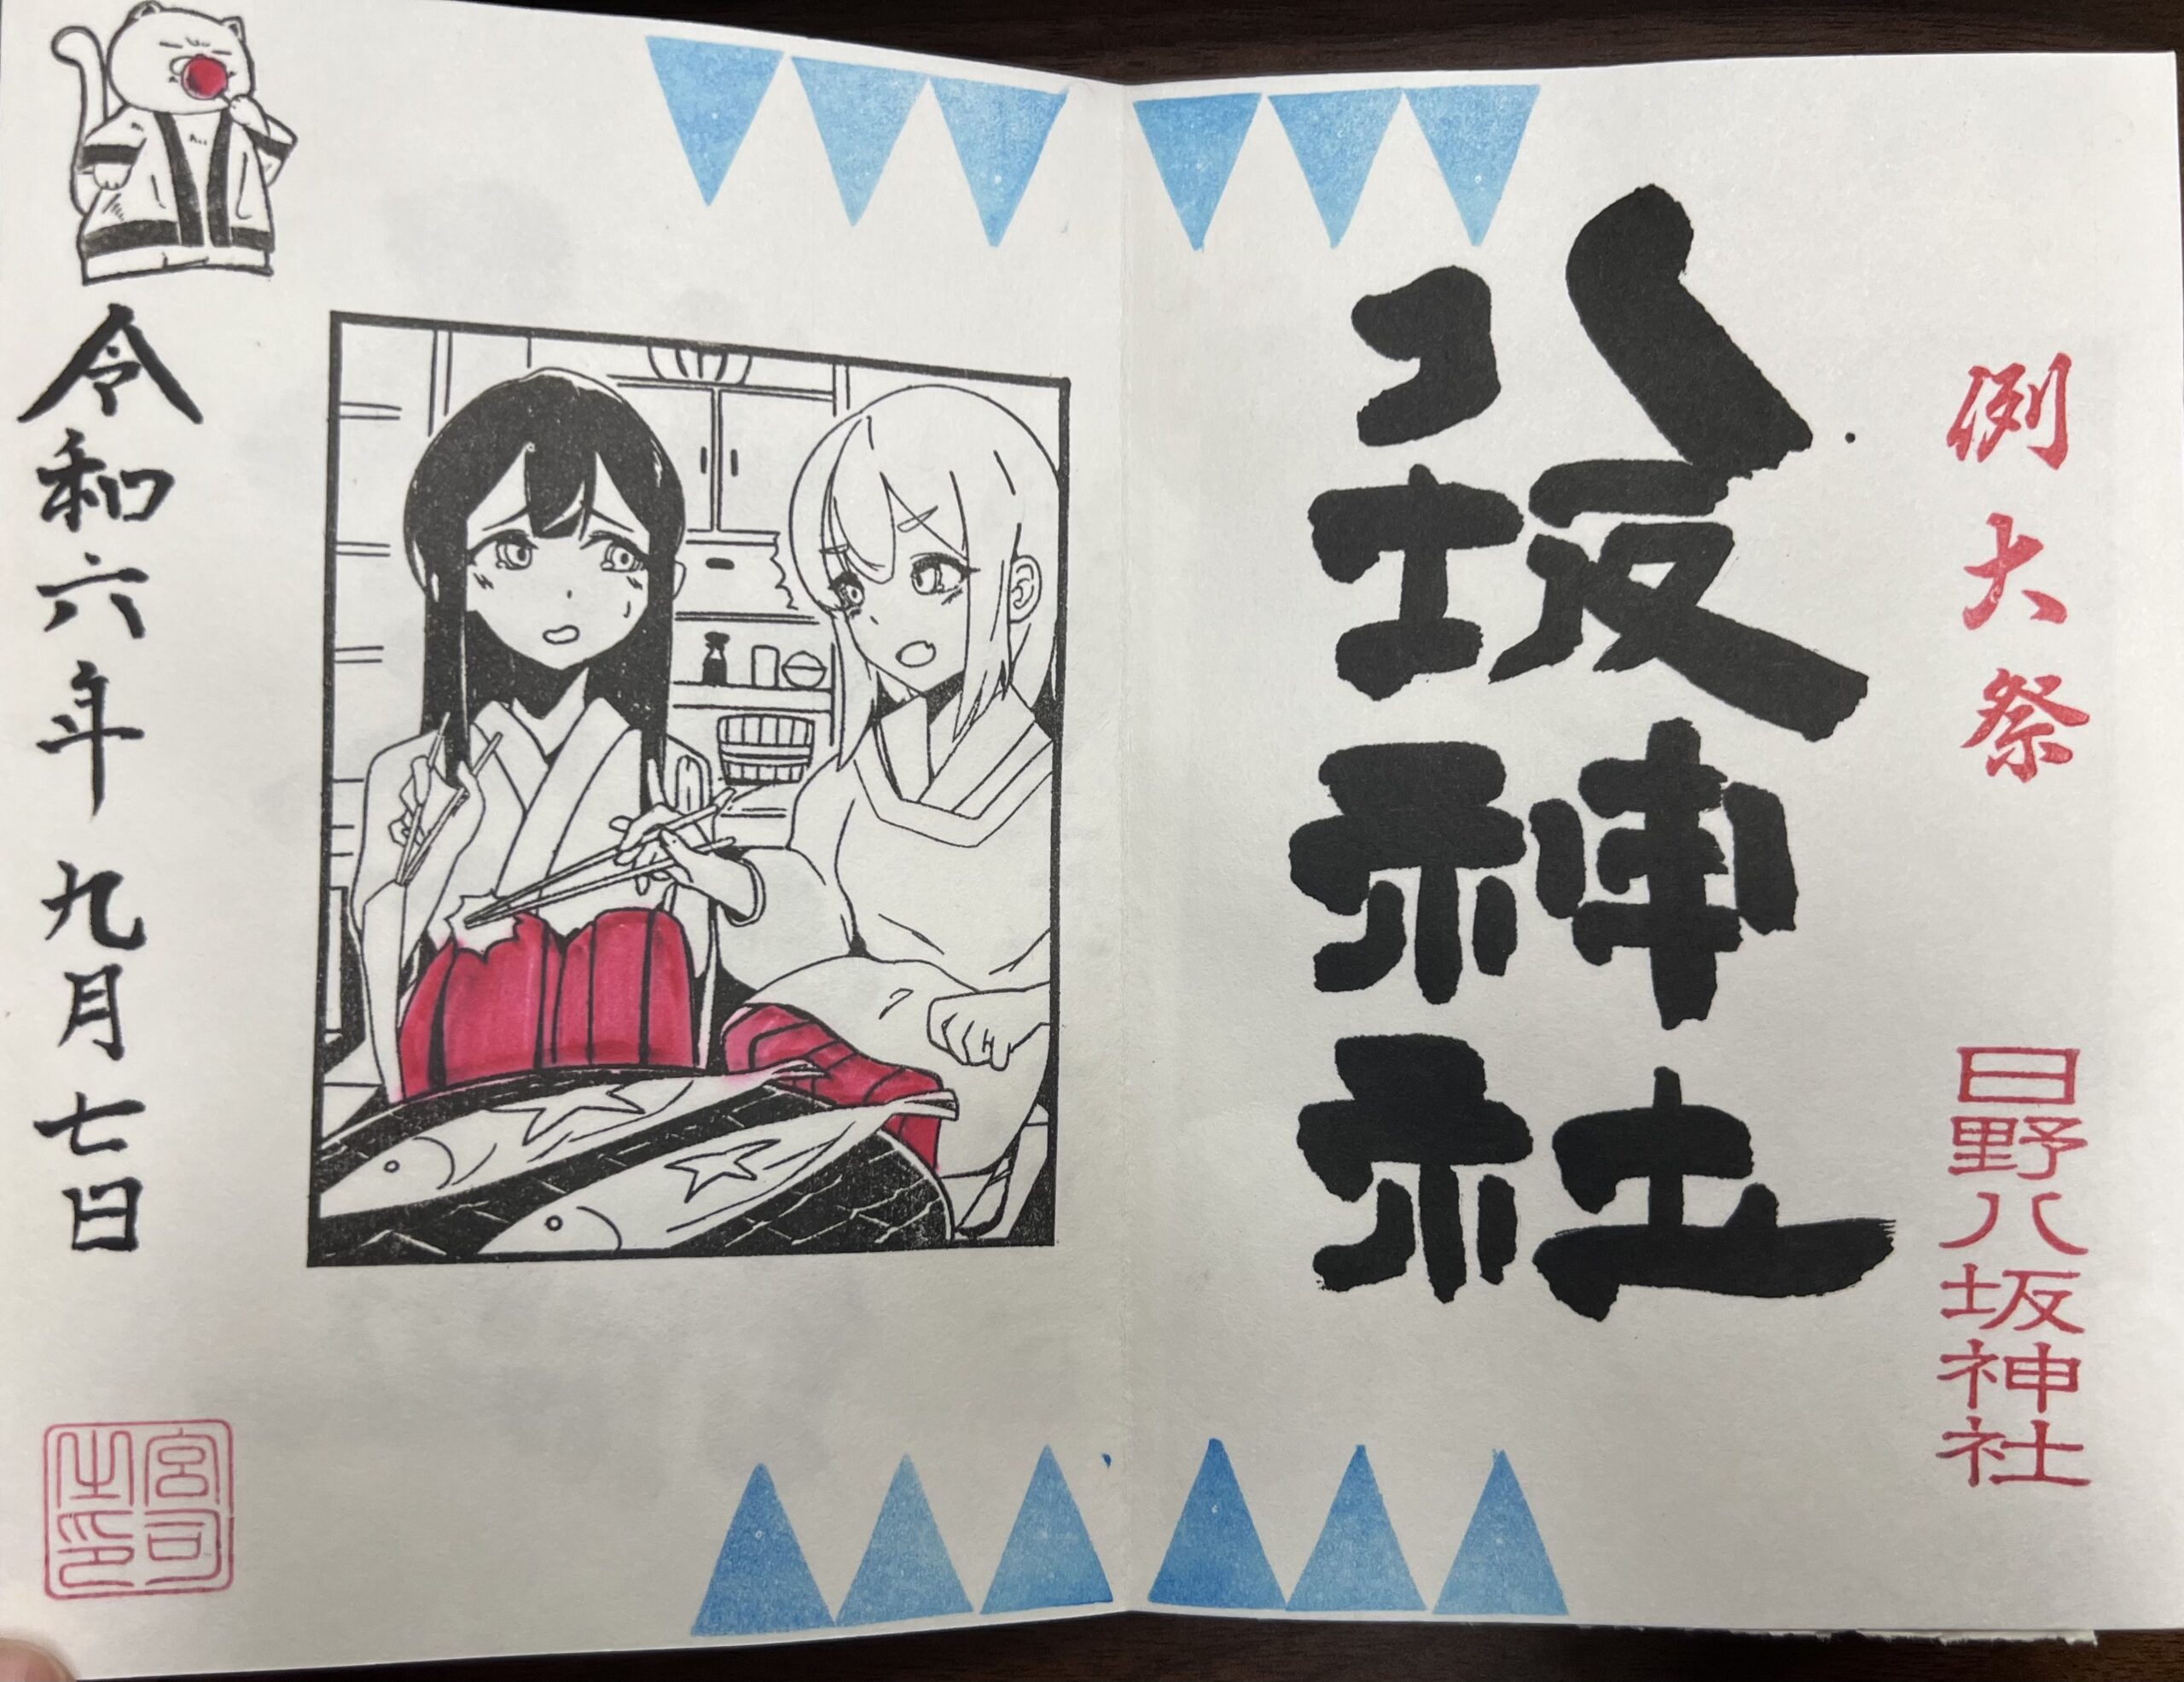 例大祭
日野八坂神社
八坂神社
令和六年九月七日
宮司之印